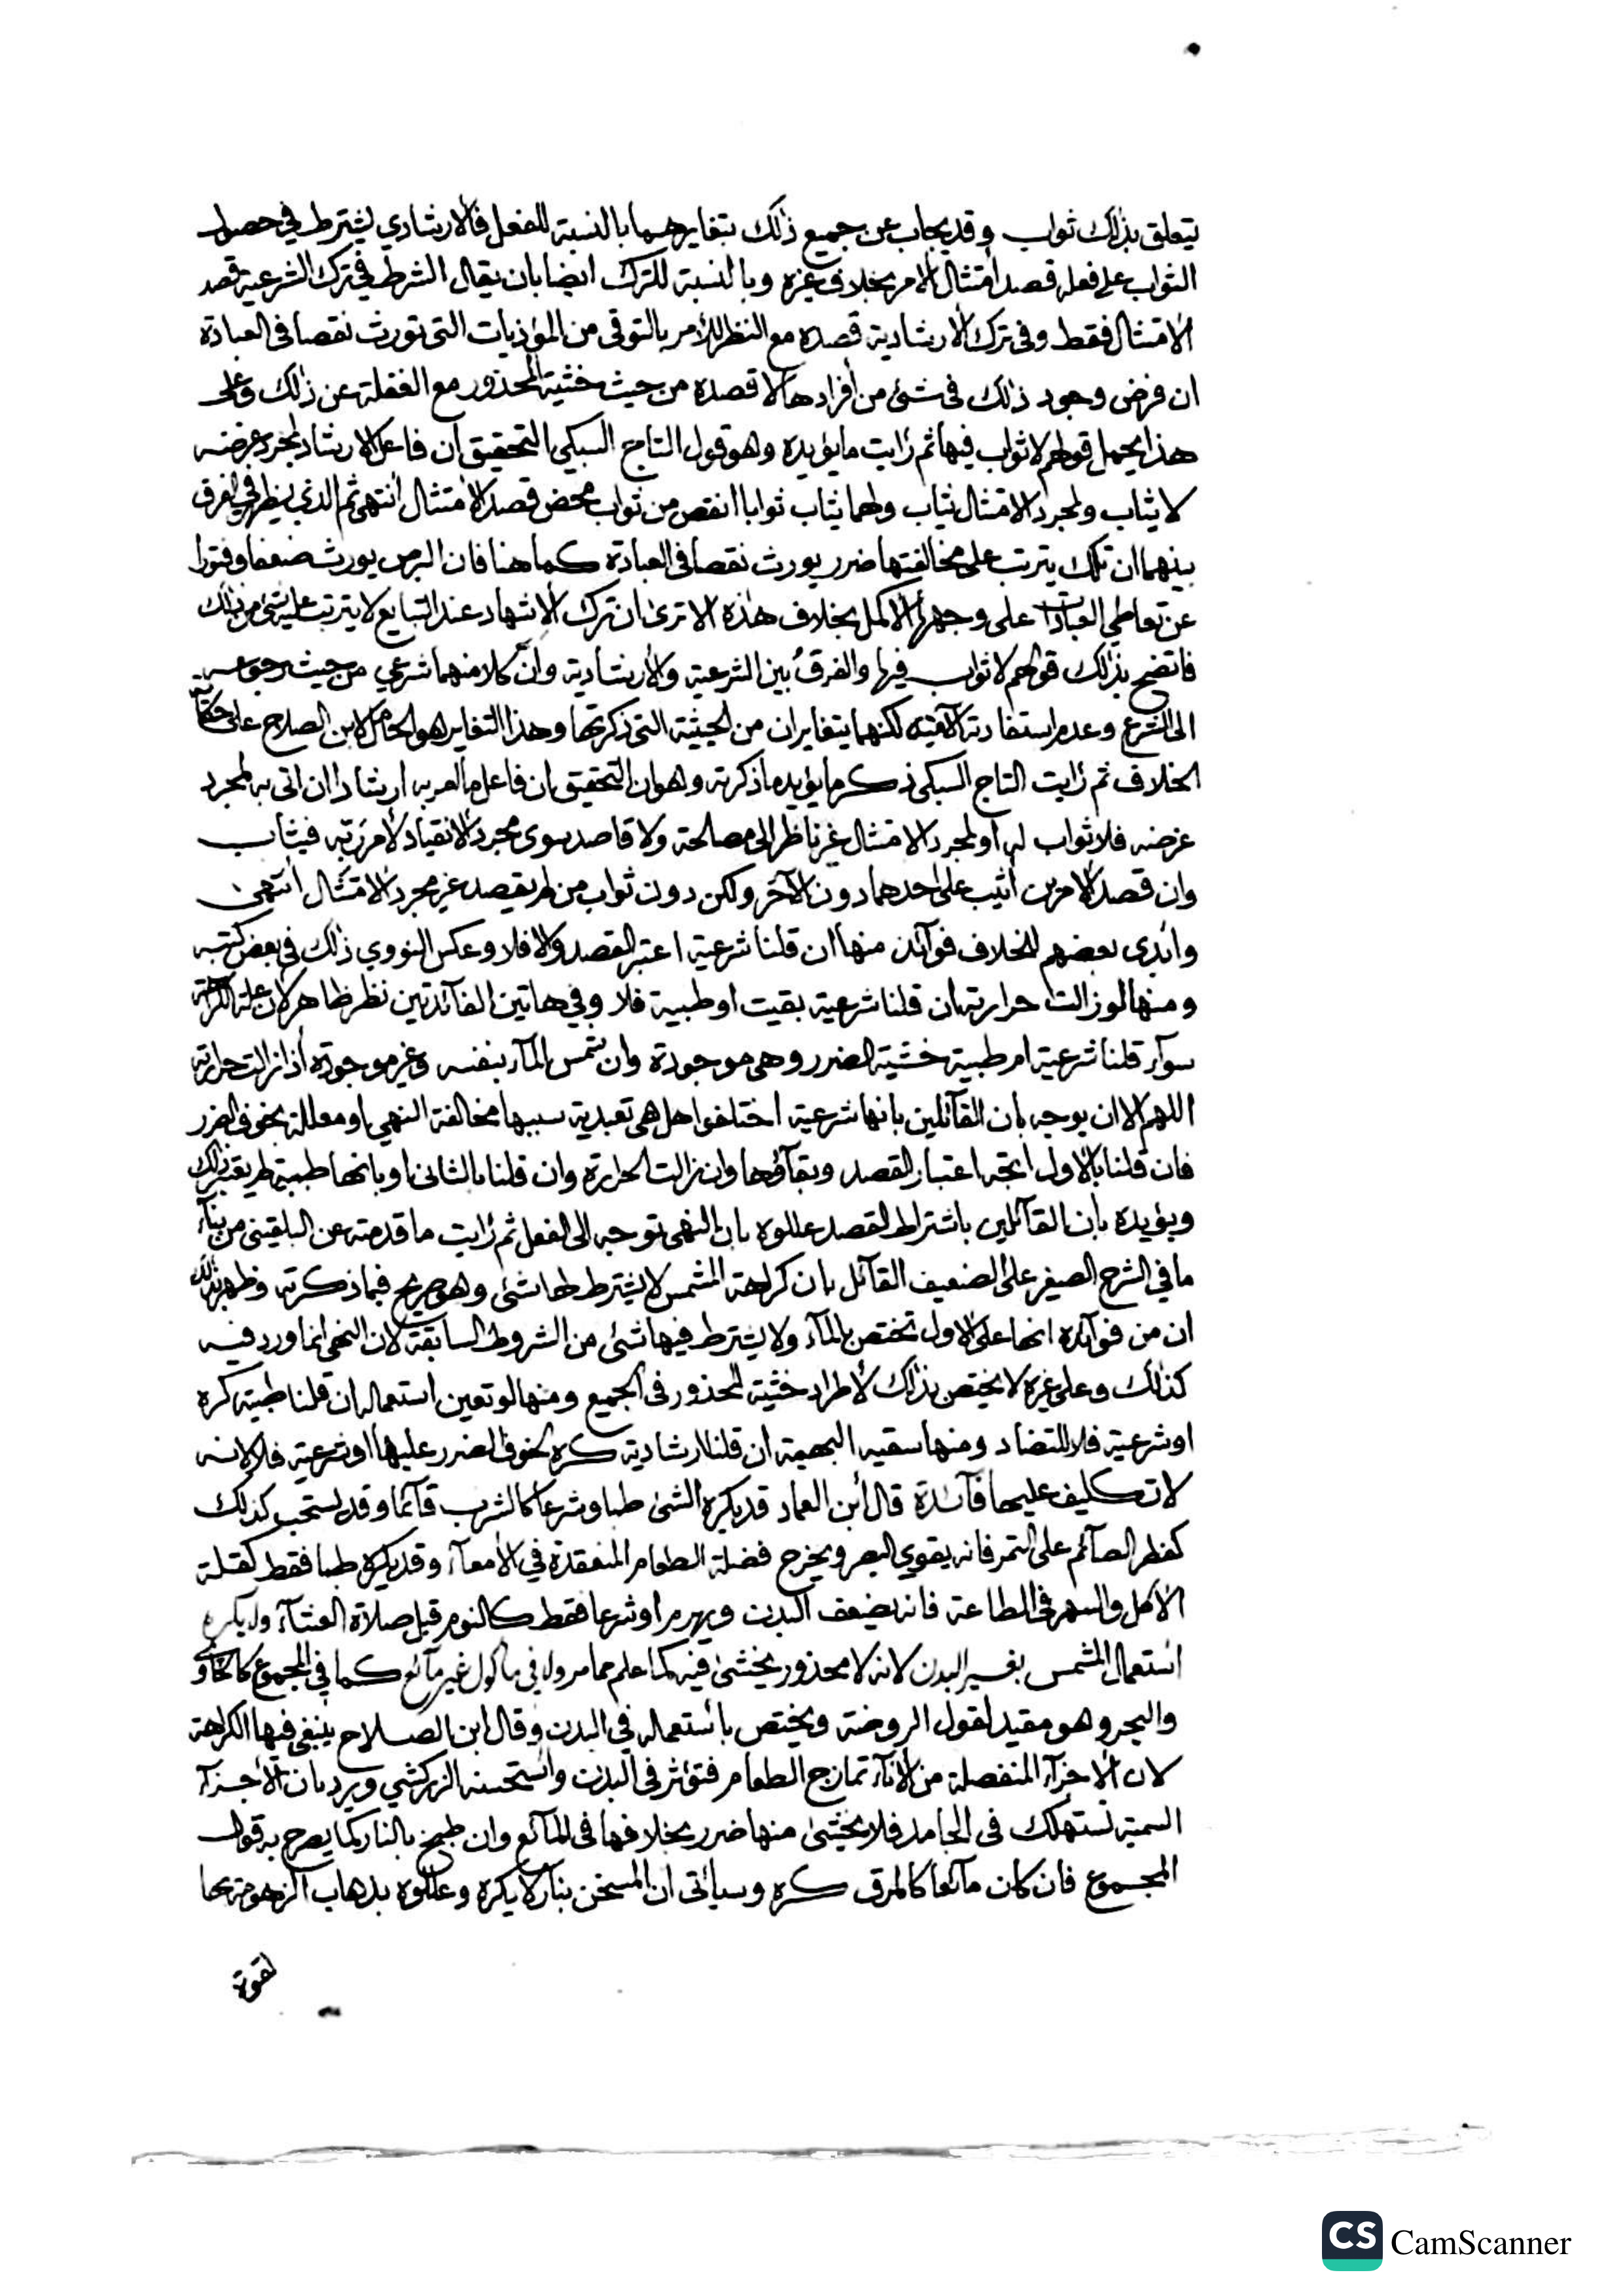 يتعلق بذلك ثواب وقد يجاب عن جميع ذلك بتغايرهما بالنسبة للفعل فالارشادي يشترط في حصول
الثواب على فعله قصد امتثال الامر بخلاف غيره وبالنسبة للترك ايضا بان يقال الشرط في ترك الشرعية قصد
الامتثال فقط وفي ترك الارشادية قصده مع النظر للأمر بالتوقي من المؤذيات التي تورث نقصا في العبادة
ان فرض وجود ذلك في شئ من أفرادها لا قصده من حيث خشية المحذور مع الغفلة عن ذلك وعلى
هذا يحمل قولهم لا ثواب فيها ثم رايت ما يؤيده وهو قول التاج السبكي التحقيق أن فاعل الارشاد لمجرد غرضه
لا يثاب ولمجرد الامتثال يثاب ولهما يثاب ثوابا انقص من ثواب محض قصد الامتثال انتهى ثم الذي يظهر في الفرق
بينهما ان تلك يترتب على مخالفتها ضرر يورث نقصا في العبادة كما هنا فان البرص يورث ضعفا وفتورا
عن تعاطي العبادات على وجهها الاكمل بخلاف هذه الا ترى ان ترك الاشهاد عند التبايع لا يترتب عليه شئ من ذلك
فاتضح بذلك قولهم لا ثواب فيها والفرق بين الشرعية والارشادية وانّ كلا منهما شرعي من حيث رجوعه
الى الشرع وعدم استفادته الا منه لكنهما يتغايران من الحيثية التي ذكرتها وهذا التغاير هو الحامل لابن الصلاح على حكاية
الخلاف ثم رايت التاج السبكي ذكر ما يؤيد ما ذكرته وهو ان التحقيق ان فاعل ما امر به ارشادا ان اتى به لمجرد
غرضه فلا ثواب له أو لمجرد الامتثال غير ناظر الى مصالحه ولا قاصد سوى مجرد الانقياد لأمر ربّه فيثاب
وان قصد الامرين أثيب على احدهما دون الآخر ولكن دون ثواب من لم يقصد غير مجرد الامتثال انتهى
وابدى بعضهم للخلاف فوائد منها ان قلنا شرعية اعتبر القصد والا فلا وعكس النووي ذلك في بعض كتبه
ومنها لو زالت حرارته ان قلنا شرعية بقيت او طبية فلا وفي هاتين الفائدتين نظر ظاهر لان علة الكراهة
سوآء قلنا شرعية ام طبية خشية الضرر وهي موجودة وان تشمس المآء بنفسه وغير موجودة أذا زالت حرارته
اللهم الا ان يوجه بان القآئلين بانها شرعية اختلفوا هل هي تعبدية سببها مخالفة النهي او معللة بخوف الضرر
فان قلنا بالاول اتجه اعتبار القصد وبقآؤها وان زالت الحرارة وان قلنا بالثاني او بانها طبية لم يعتبر ذلك
ويؤيده بان القآئلين باشتراط القصد عللوه بان النهي توجه الى الفعل ثم رايت ما قدمته عن البلقيني من بنآء
ما في الشرح الصغير على الضعيف القآئل بان كراهة المشمس لا يشترط لها شئ وهو صريح فيما ذكرته وظهر بذلك
ان من فوآئده انها على الاول تختص بالمآء ولا يشترط فيها شئ من الشروط السابقة لان النهي انما ورد فيه
كذلك وعلى غيره لا يختص بذلك لأطراد خشية المحذور في الجميع ومنها لو تعين استعماله ان قلنا طبية كره
او شرعية فلا للتضاد ومنها سقيه البهيمة ان قلنا ارشادية كره لخوف الضرر عليها او شرعية فلا لانه
لا تكليف عليها فآئدة قال أبن العماد قد يكره الشئ طبا وشرعا كالشرب قآئما وقد يستحب كذلك
كفطر الصآئم على التمر فانه يقوي البصر ويخرج فضلة الطعام المنعقدة في الأمعآء وقد يكره طبا فقط كقلة
الأكل والسهر في الطاعة فانه يضعف البدن ويهرم او شرعا فقط كالنوم قبل صلاة العشآء ولا يكره
استعمال المشمس بغير البدن لانه لا محذور يخشى فيه كما علم مما مر ولا في ماكول غير مآئع كما في المجموع كالحاوي
والبحر وهو مقيد لقول الروضة ويختص باستعماله في البدن وقال ابن الصلاح ينبغي فيها الكراهة
لان الاجزآء المنفصلة من الانآء تمازج الطعام فتؤثر في البدن واستحسنه الزركشي ويرد بان الأجزآء
السمية تستهلك في الجامد فلا يخشى منها ضرر بخلافها في المآئع وان طبخ بالنار كما يصرح به قول
المجموع فان كان مآئعا كالمرق كره وسيأتي ان المسخن بنار لا يكره وعللوه بذهاب الزهومة بها
لقوة
CS CamScanner